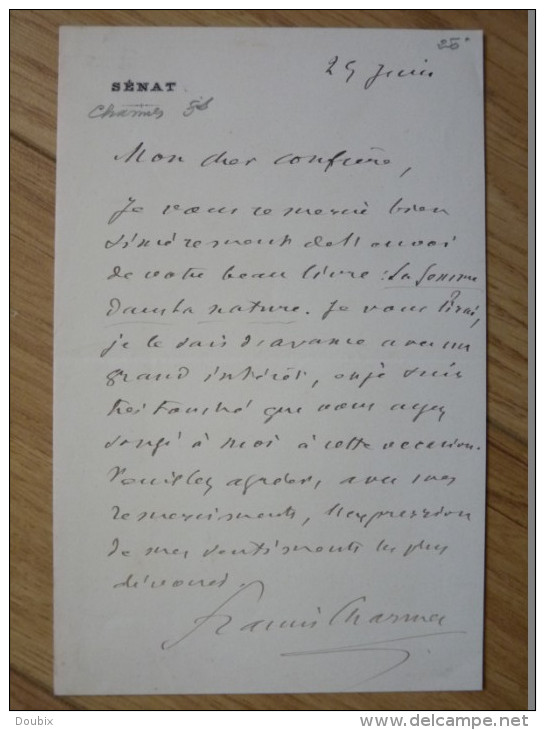 25
29 Juin
SÉNAT
Charmes
Mon cher confrère,
Je vous remercie bien
sincèrement de l'envoi
de votre beau livre : La femme
dans la nature. Je vous lirai,
je le sais d'avance avec un
grand intérêt, et je suis
très touché que vous ayez
songé à moi à cette occasion.
Veuillez agréer, avec mes
remerciements, l'expression
de mes sentiments les plus
dévoués.
Francis Charmes
Doubix
www.delcampe.net